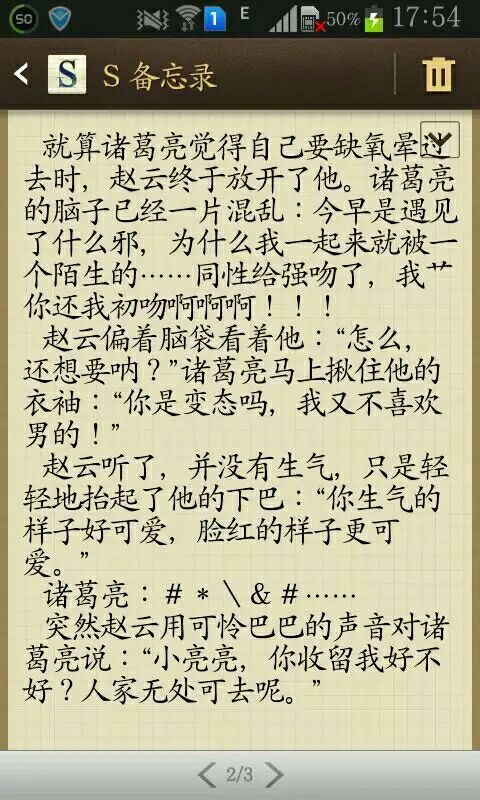 50 1 E 50% 17:54
S S 备忘录
就算诸葛亮觉得自己要缺氧晕过
去时，赵云终于放开了他。诸葛亮
的脑子已经一片混乱：今早是遇见
了什么邪，为什么我一起来就被一
个陌生的……同性给强吻了，我艹
你还我初吻啊啊啊！！！
赵云偏着脑袋看着他：“怎么，
还想要呐？”诸葛亮马上揪住他的
衣袖：“你是变态吗，我又不喜欢
男的！”
赵云听了，并没有生气，只是轻
轻地抬起了他的下巴：“你生气的
样子好可爱，脸红的样子更可
爱。”
诸葛亮：＃＊＼＆＃……
突然赵云用可怜巴巴的声音对诸
葛亮说：“小亮亮，你收留我好不
好？人家无处可去呢。”
2/3